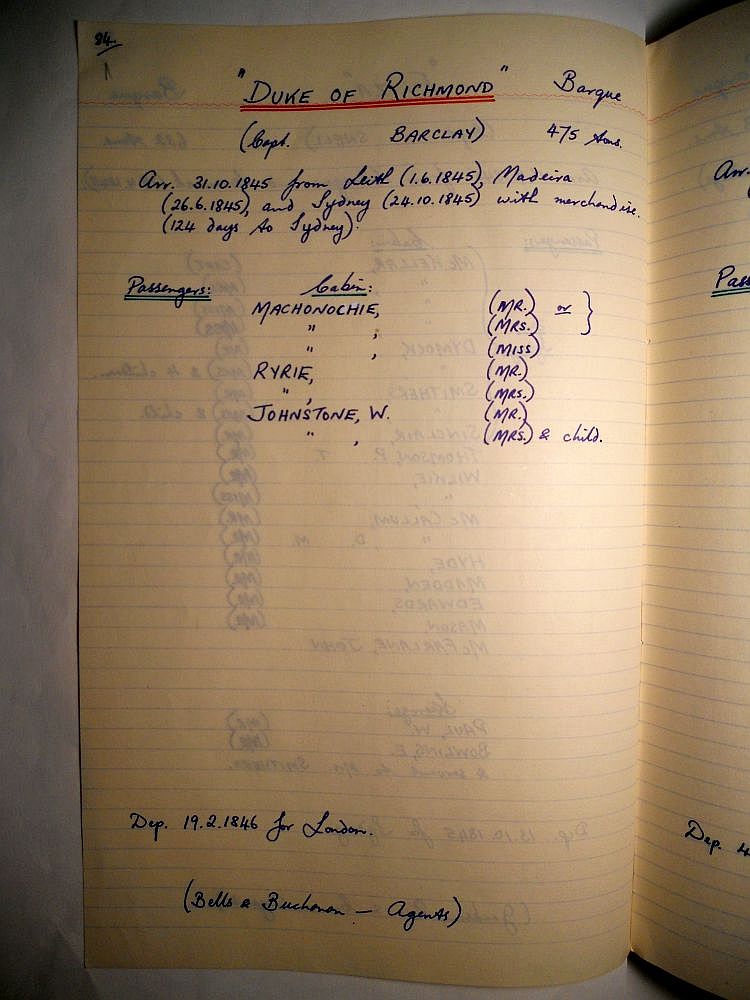 84.
"DUKE OF RICHMOND" Barque
(Capt. BARCLAY) 475 tons.
Arr. 31.10.1845 from Leith (1.6.1845), Madeira
(26.6.1845), and Sydney (24.10.1845) with merchandise.
(124 days to Sydney).
Passengers: Cabin:
MACHONOCHIE, (MR.) or }
" , (MRS.)
" , (MISS)
RYRIE, (MR.)
" , (MRS.)
JOHNSTONE, W. (MR.)
" , (MRS.) & child.
Dep. 19.2.1846 for London.
(Bells & Buchanan — Agents)
Arr.
Pass
Dep. 4